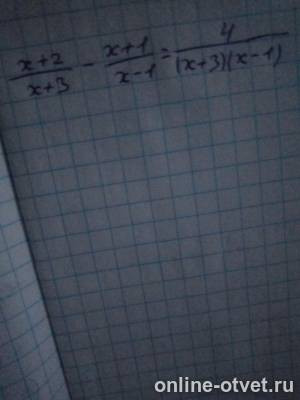 (x+2)/(x+3) - (x+1)/(x-1) = 4/((x+3)(x-1))
online-otvet.ru